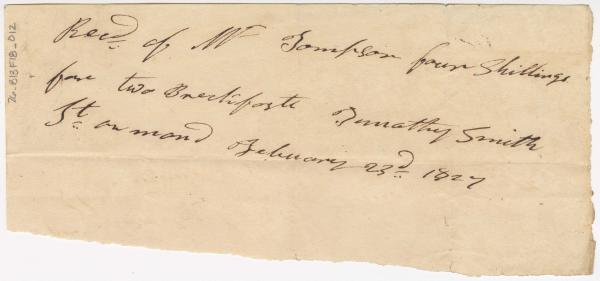 Recd. of Mr Tompson four Shillings
for two Breckfasts Timathy Smith
St armand February 23d. 1827
76-B18F1B-012